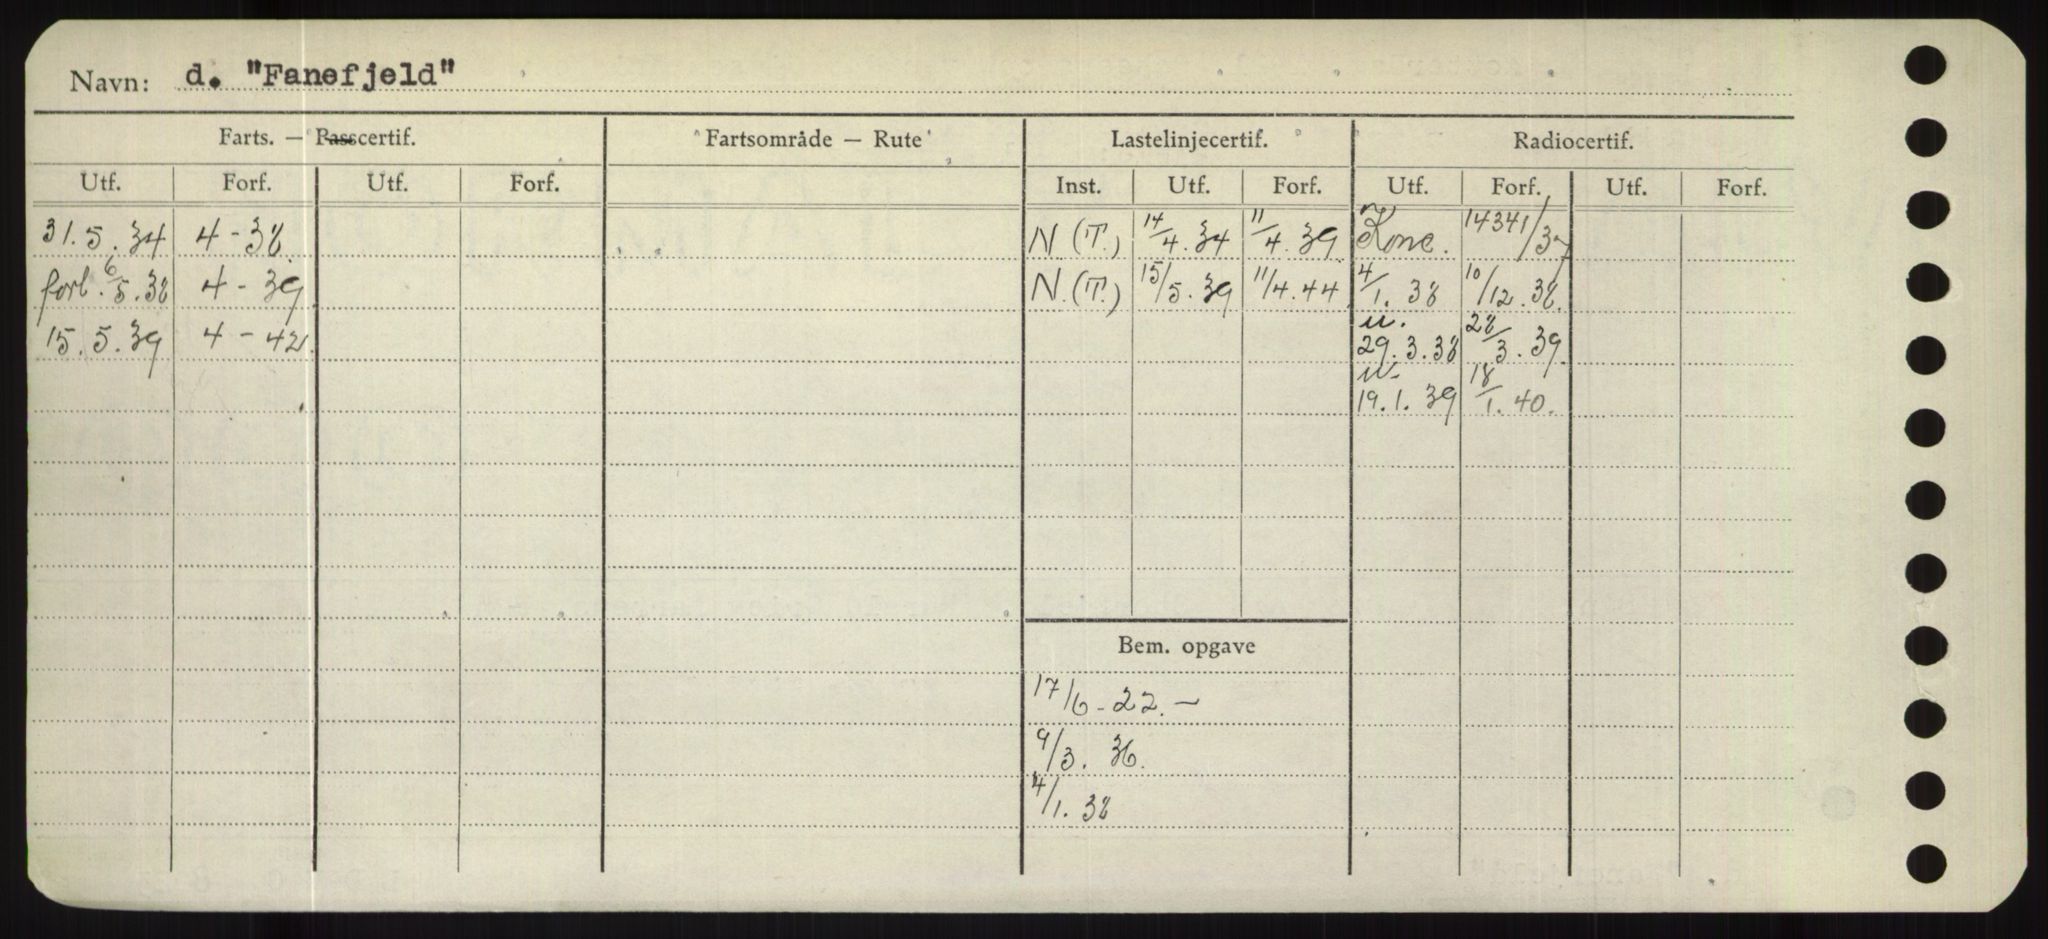 Navn: d. "Fanefjeld"
Farts. — Passcertif. Fartsområde — Rute Lastelinjecertif. Radiocertif.
Utf. Forf. Utf. Forf. Inst. Utf. Forf. Utf. Forf. Utf. Forf.
31.5.34 4-38. N (T.) 14/4.34 11/4.39 Konc. 14341/37
forl. 6/5.38 4-39 N.(T.) 15/5.39 11/4.44 4/1.38 10/12.38.
15.5.39 4-42. u. 29.3.38 28/3.39.
u. 19.1.39 18/1.40.
Bem. opgave
17/6-22.—
9/3.36.
4/1.38